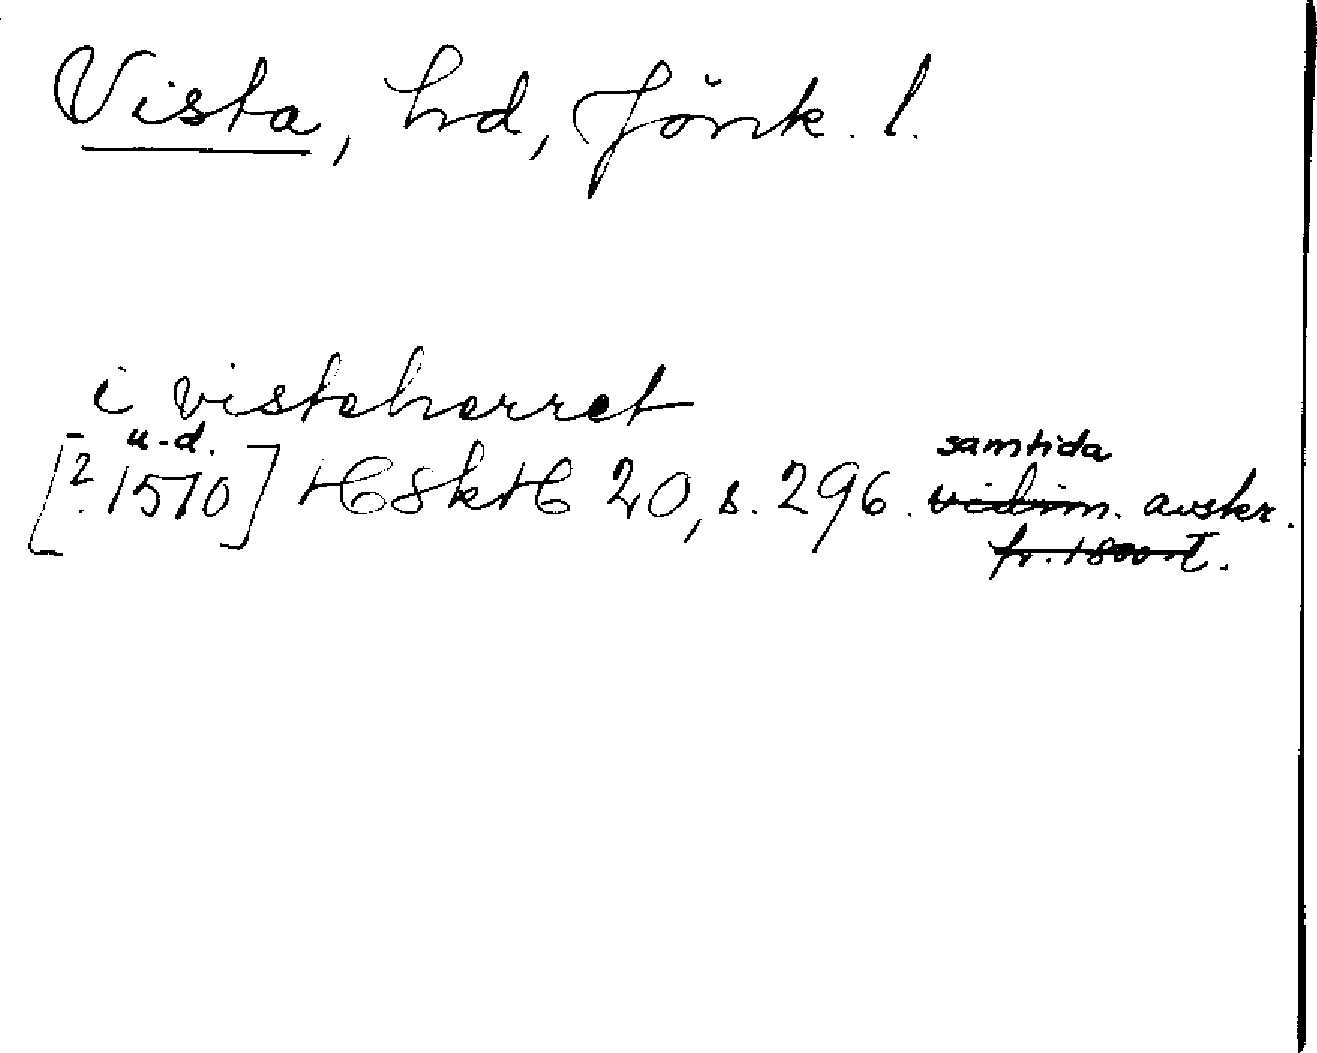 Vista, hd, Jönk. l.
i vistaharret
u.d.
[? 1510] HSkH 20, s. 296. samtida
vidim. avskr.
fr. 1800-t.